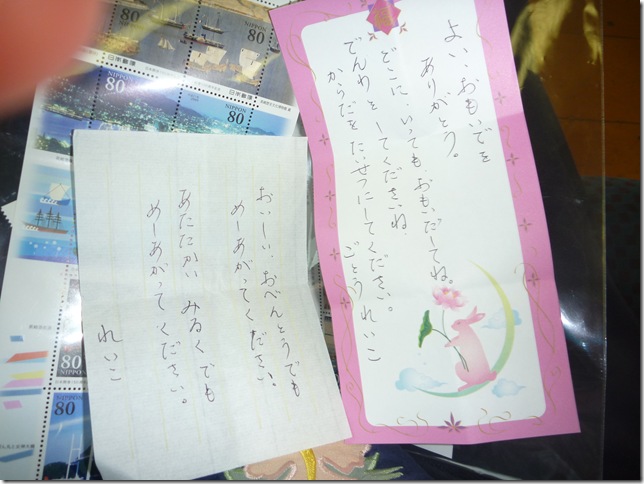 よい、おもいでを
ありがとう。
どこに いっても、おもいだしてね。
でんわ をしてくださいね
からだをたいせつにしてください。
ごとうれいこ
おいしい、おべんとうでも
めしあがってください。
あたたかい みるくでも
めしあがってください。
れいこ
80
日本郵便
NIPPON
80
80
日本郵便
NIPPON
80
80
NIPPON
80
NIPPON
80